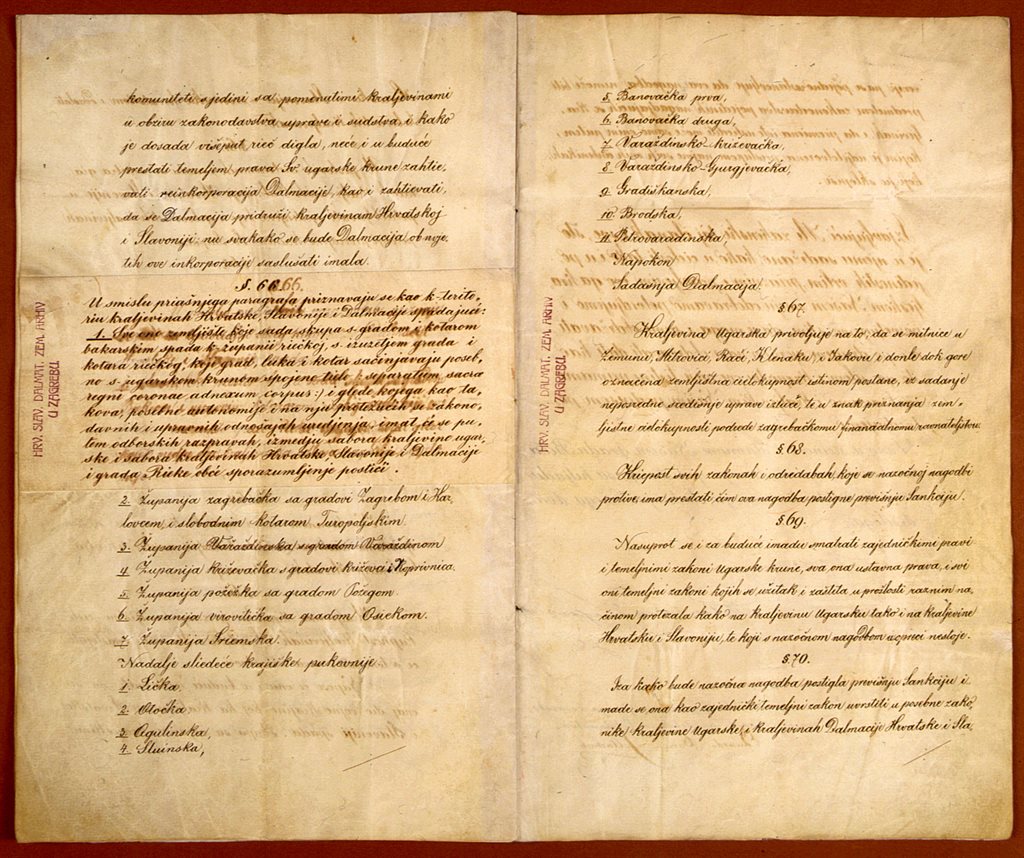 komuniteti sjedini sa pomenutimi kraljevinami
u obziru zakonodavstva uprave i sudstva, i kako
je dosada višeput rieč digla, neće i u buduće
prestati temeljem prava Sv. ugarske krune zahtie,
vati reinkorporaciju Dalmacije, kao i zahtievati,
da se Dalmacija pridruži kraljevinam Hrvatskoj
i Slavoniji: nu svakako se bude Dalmacija ob uvje,
tih ove inkorporaciji saslušati imala.
§. 66.
U smislu priašnjega paragrafa priznavaju se kao k terito,
riu kraljevinah Hrvatske, Slavonije i Dalmacije spadajući:
1. Sve ono zemljište koje sada skupa s gradom i kotarom
bakarskim spada k županii riečkoj, s izuzetjem grada i
kotara riečkog, koji grad, luka i kotar sačinjavaju poseb,
no s ugarskom krunom spojeno tielo (: separatum sacra
regni coronae adnexum corpus:) i glede kojega kao ta,
kova, posebne autonomije i na nju protežućih se zakono,
davnih i upravnih odnošajah uredjenja, imat će se pu,
tem odborskih razpravah, izmedju sabora kraljevine ugar,
ske i sabora kraljevinah Hrvatske, Slavonije i Dalmacije
i grada Rieke obće sporazumljenje postići.
2. Županija zagrebačka sa gradovi Zagrebom i Kar,
lovcem i slobodnim kotarom Turopoljskim.
3. Županija Varaždinska s gradom Varaždinom
4. Županija križevačka s gradovi križevci i Koprivnica.
5. Županija požežka sa gradom Požegom.
6. Županija virovitička sa gradom Osiekom.
7. Županija Sriemska.
Nadalje sliedeće krajiške pukovnije
1. Lička,
2. Otočka,
3. Ogulinska,
4. Sluinska,
HRV. SLAV. DALMAT. ZEM. ARHIV
U ZAGREBU.
5. Banovačka prva,
6. Banovačka druga,
7. Varaždinsko-križevačka,
8. Varaždinsko-Gjurgjevačka,
9. Gradiškanska,
10. Brodska,
11. Petrovaradinska,
Napokon
Sadašnja Dalmacija.
§ 67.
Kraljevina Ugarska privoljuje na to, da se mitnice u
Zemunu, Mitrovici, Rači, Klenaku, i Jakovu i donle dok gore
označena zemljištna cielokupnost istinom postane, iz sadanje
neposredne središnje uprave izluče, te u znak priznanja zem,
ljištne cielokupnosti podrede zagrebačkomu financialnomu ravnateljstvu.
§. 68.
Kriepost svih zakonah i odredabah, koje se nazočnoj nagodbi
protive, ima prestati čim ova nagodba postigne previšnju Sankciju.
§ 69.
Nasuprot se i za buduće imadu smatrati zajedničkimi pravi
i temeljnimi zakoni Ugarske krune, sva ona ustavna prava, i svi
oni temeljni zakoni kojih se užitak i zaštita u prošlosti raznim na,
činom protezala kako na kraljevinu Ugarsku tako i na kraljevine
Hrvatsku i Slavoniju, te koji s nazočnom nagodbom uopreci nestoje.
§. 70.
Iza kako bude nazočna nagodba postigla previšnju Sankciju i,
made se ona kao zajednički temeljni zakon uvrstiti u posebne zako,
nike kraljevine Ugarske, i kraljevinah Dalmacije Hrvatske i Sla,
HRV. SLAV. DALMAT. ZEM. ARHIV
U ZAGREBU.